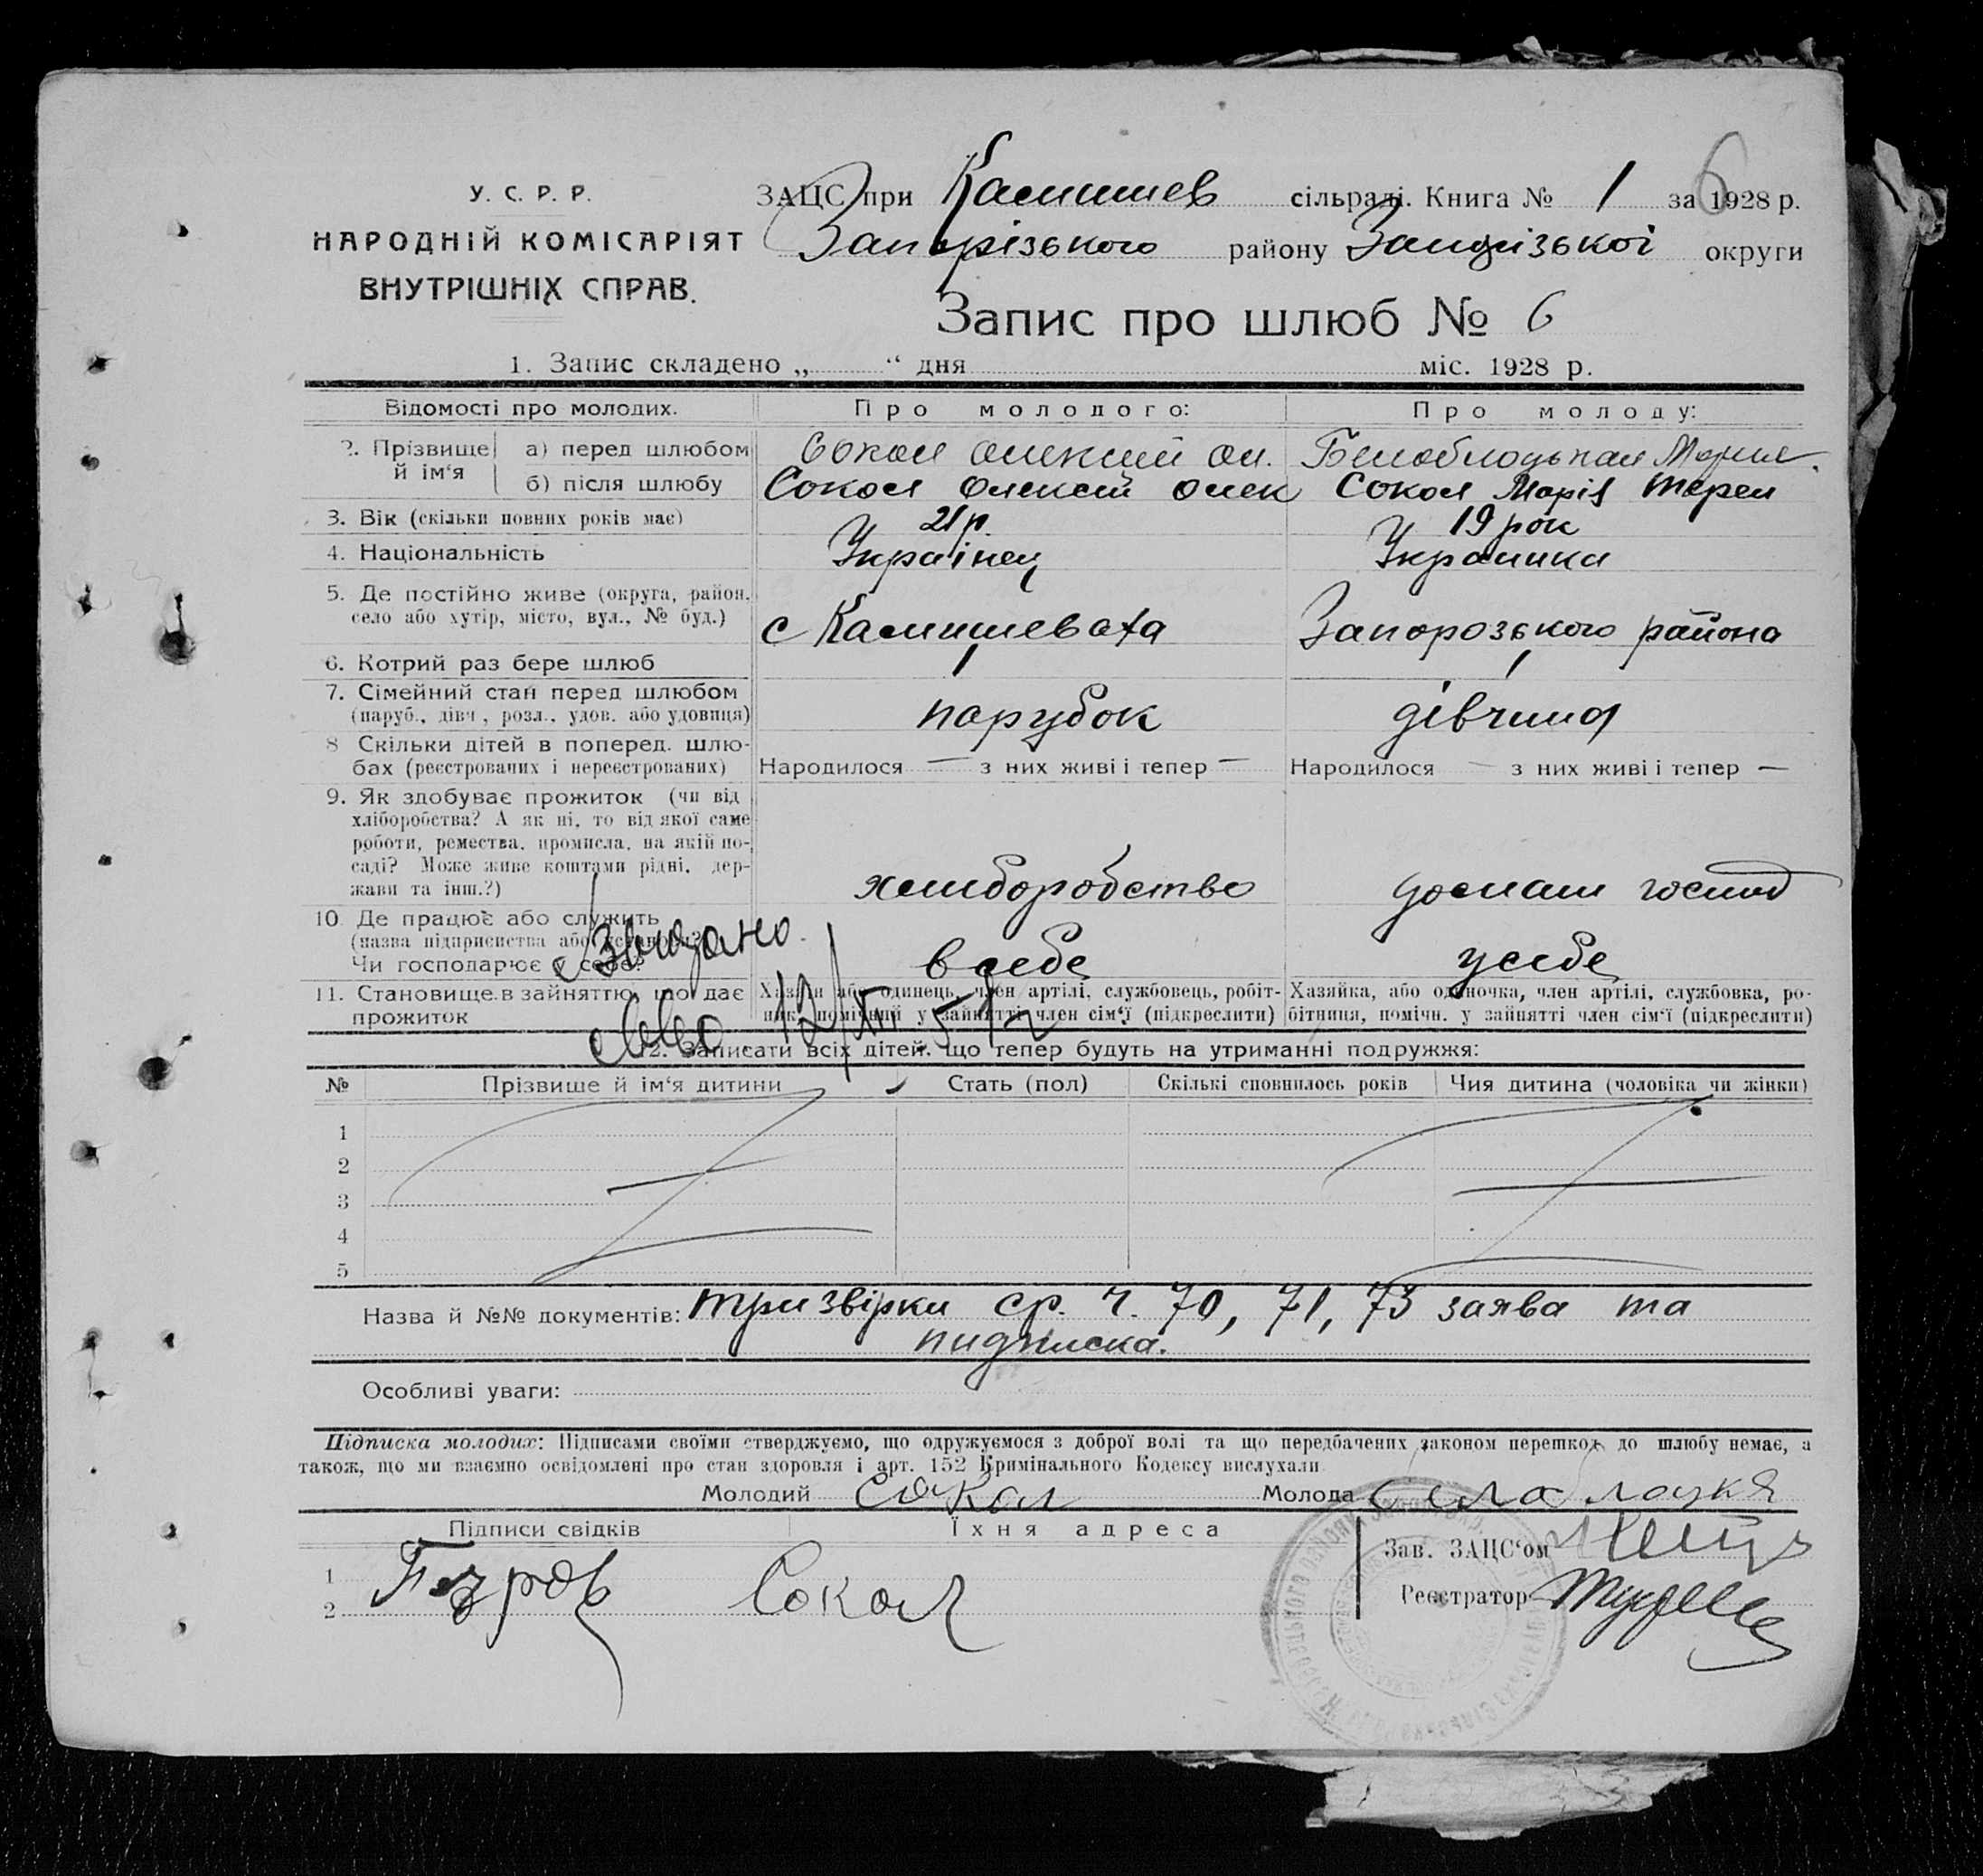 6
У. С. Р. Р.
НАРОДНІЙ КОМІСАРІЯТ
ВНУТРІШНІХ СПРАВ.
ЗАЦС при Камишев сільраді. Книга № 1 за 1928 р.
Запорізького району Запорізької округи
Запис про шлюб № 6
1. Запис складено „ “ дня міс. 1928 р.
Відомості про молодих. Про молодого: Про молоду:
2. Прізвище й ім‘я
а) перед шлюбом Сокол Олексий Ол. Белоблоцькая Мария
б) після шлюбу Сокол Олексій Олек Сокол Марія Терен
3. Вік (скільки повних років має) 21 р. 19 рок
4. Національність Українец Украинка
5. Де постійно живе (округа, район, село або хутір, місто, вул., № буд.) с Камишевата Запорозького района
6. Котрий раз бере шлюб 1 1
7. Сімейний стан перед шлюбом (паруб., дівч., розл., удов. або удовиця) парубок дівчина
8 Скільки дітей в поперед. шлюбах (реєстрованих і нереєстрованих) Народилося — з них живі і тепер — Народилося — з них живі і тепер —
9. Як здобуває прожиток (чи від хліборобства? А як ні, то від якої саме роботи, ремества, промисла, на якій посаді? Може живе коштами рідні, держави та інш.?) хлиборобство домаш господ
10 Де працює або служить (назва підприємства або установи? Чи господарює у себе? в себе у себе
11. Становище в зайняттю, що дає прожиток
Хазяїн або одинець, член артілі, службовець, робітник, помічний у зайнятті член сім‘ї (підкреслити)
Хазяйка, або одиночка, член артілі, службовка, робітниця, помічн. у зайнятті член сім‘ї (підкреслити)
12. Записати всіх дітей, що тепер будуть на утриманні подружжя:
№ Прізвище й ім‘я дитини Стать (пол) Скількі сповнилось років Чия дитина (чоловіка чи жінки)
1
2
3
4
5
Назва й №№ документів: три звірки ср. ч. 70, 71, 73 заява та
пидписка.
Особливі уваги:
Підписка молодих: Підписами своїми стверджуємо, що одружуємося з доброї волі та що передбачених законом перешкод до шлюбу немає, а
також, що ми взаємно освідомлені про стан здоровля і арт. 152 Кримінального Кодексу вислухали
Молодий Сокол Молода
Підписи свідків Їхня адреса
Зав. ЗАЦС‘ом
1
Реєстратор
2 Сокол